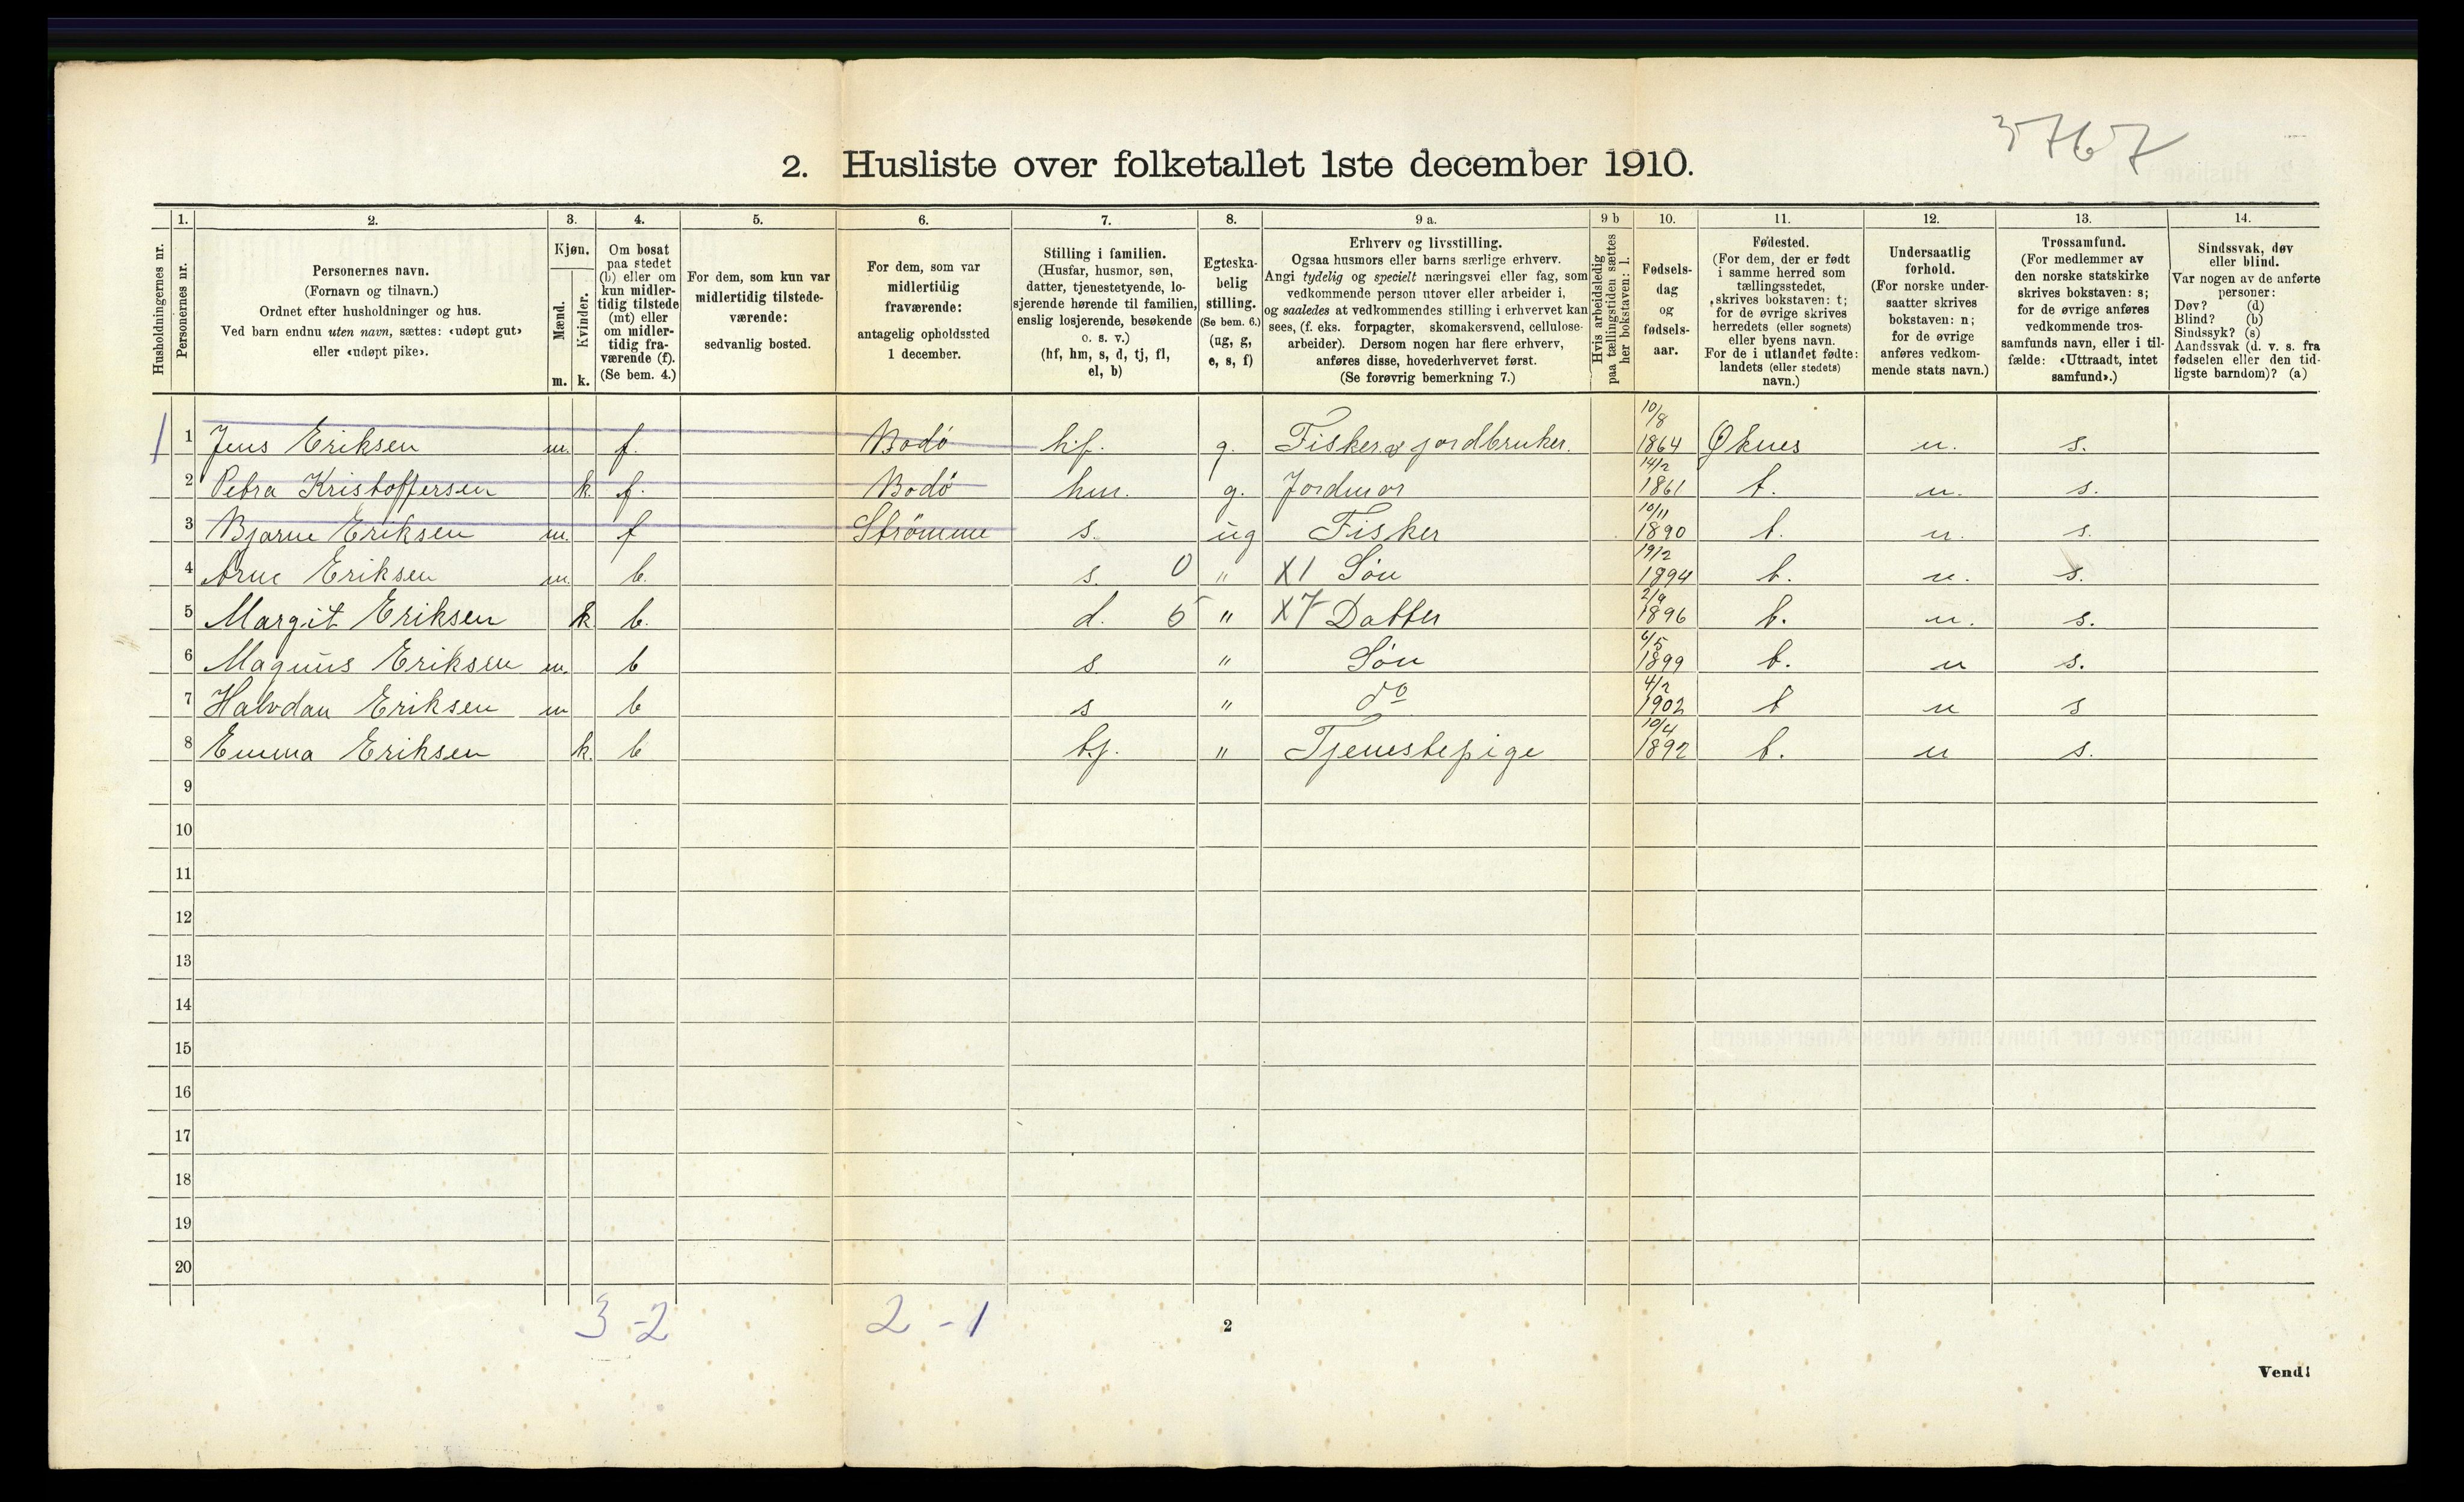 3767
2. Husliste over folketallet 1ste december 1910.
Husholdningernes nr.
1.
Personernes nr.
2.
Personernes navn.
(Fornavn og tilnavn.)
Ordnet efter husholdninger og hus.
Ved barn endnu uten navn, sættes: «udøpt gut»
eller «udøpt pike».
3.
Kjøn.
Mænd.
m.
Kvinder.
k.
4.
Om bosat
paa stedet
(b) eller om
kun midler-
tidig tilstede
(mt) eller
om midler-
tidig fra-
værende (f).
(Se bem. 4.)
5.
For dem, som kun var
midlertidig tilstede-
værende:
sedvanlig bosted.
6.
For dem, som var
midlertidig
fraværende:
antagelig opholdssted
1 december.
7.
Stilling i familien.
(Husfar, husmor, søn,
datter, tjenestetyende, lo-
sjerende hørende til familien,
enslig losjerende, besøkende
o. s. v.)
(hf, hm, s, d, tj, fl,
el, b)
8.
Egteska-
belig
stilling.
(Se bem. 6.)
(ug, g,
e, s, f)
9 a.
Erhverv og livsstilling.
Ogsaa husmors eller barns særlige erhverv.
Angi tydelig og specielt næringsvei eller fag, som
vedkommende person utøver eller arbeider i,
og saaledes at vedkommendes stilling i erhvervet kan
sees, (f. eks. forpagter, skomakersvend, cellulose-
arbeider). Dersom nogen har flere erhverv,
anføres disse, hovederhvervet først.
(Se forøvrig bemerkning 7.)
9 b
Hvis arbeidsledig
paa tællingstiden sættes
her bokstaven: l.
10.
Fødsels-
dag
og
fødsels-
aar.
11.
Fødested.
(For dem, der er født
i samme herred som
tællingsstedet,
skrives bokstaven: t;
for de øvrige skrives
herredets (eller sognets)
eller byens navn.
For de i utlandet fødte:
landets (eller stedets)
navn.)
12.
Undersaatlig
forhold.
(For norske under-
saatter skrives
bokstaven: n;
for de øvrige
anføres vedkom-
mende stats navn.)
13.
Trossamfund.
(For medlemmer av
den norske statskirke
skrives bokstaven: s;
for de øvrige anføres
vedkommende tros-
samfunds navn, eller i til-
fælde: «Uttraadt, intet
samfund».)
14.
Sindssvak, døv
eller blind.
Var nogen av de anførte
personer:
Døv? (d)
Blind? (b)
Sindssyk? (s)
Aandssvak (d. v. s. fra
fødselen eller den tid-
ligste barndom)? (a)
1 1 Jens Eriksen m. f. Bodö hf. g. Fisker & jordbruker. 10/8 1864 Øknes n. s.
2 Petra Kristoffersen k. f. Bodö hm. g. Jordmor 14/2 1861 t. n. s.
3 Bjarne Eriksen m. f Strömme s. ug Fisker 10/11 1890 t. n. s.
4 Arne Eriksen m. b. s. 0 " X1 Sön 19/2 1894 t. n. s.
5 Margit Eriksen k. b. d. 5 " X7 Datter 2/9 1896 t. n. s.
6 Magnus Eriksen m. b s " Sön 6/5 1899 t. n s.
7 Halvdan Eriksen m b s " do 4/2 1902 t n s
8 Emma Eriksen k. b tj. " Tjenestepige 10/4 1892 t. n s.
9
10
11
12
13
14
15
16
17
18
19
20
3-2 2-1
2
Vend!